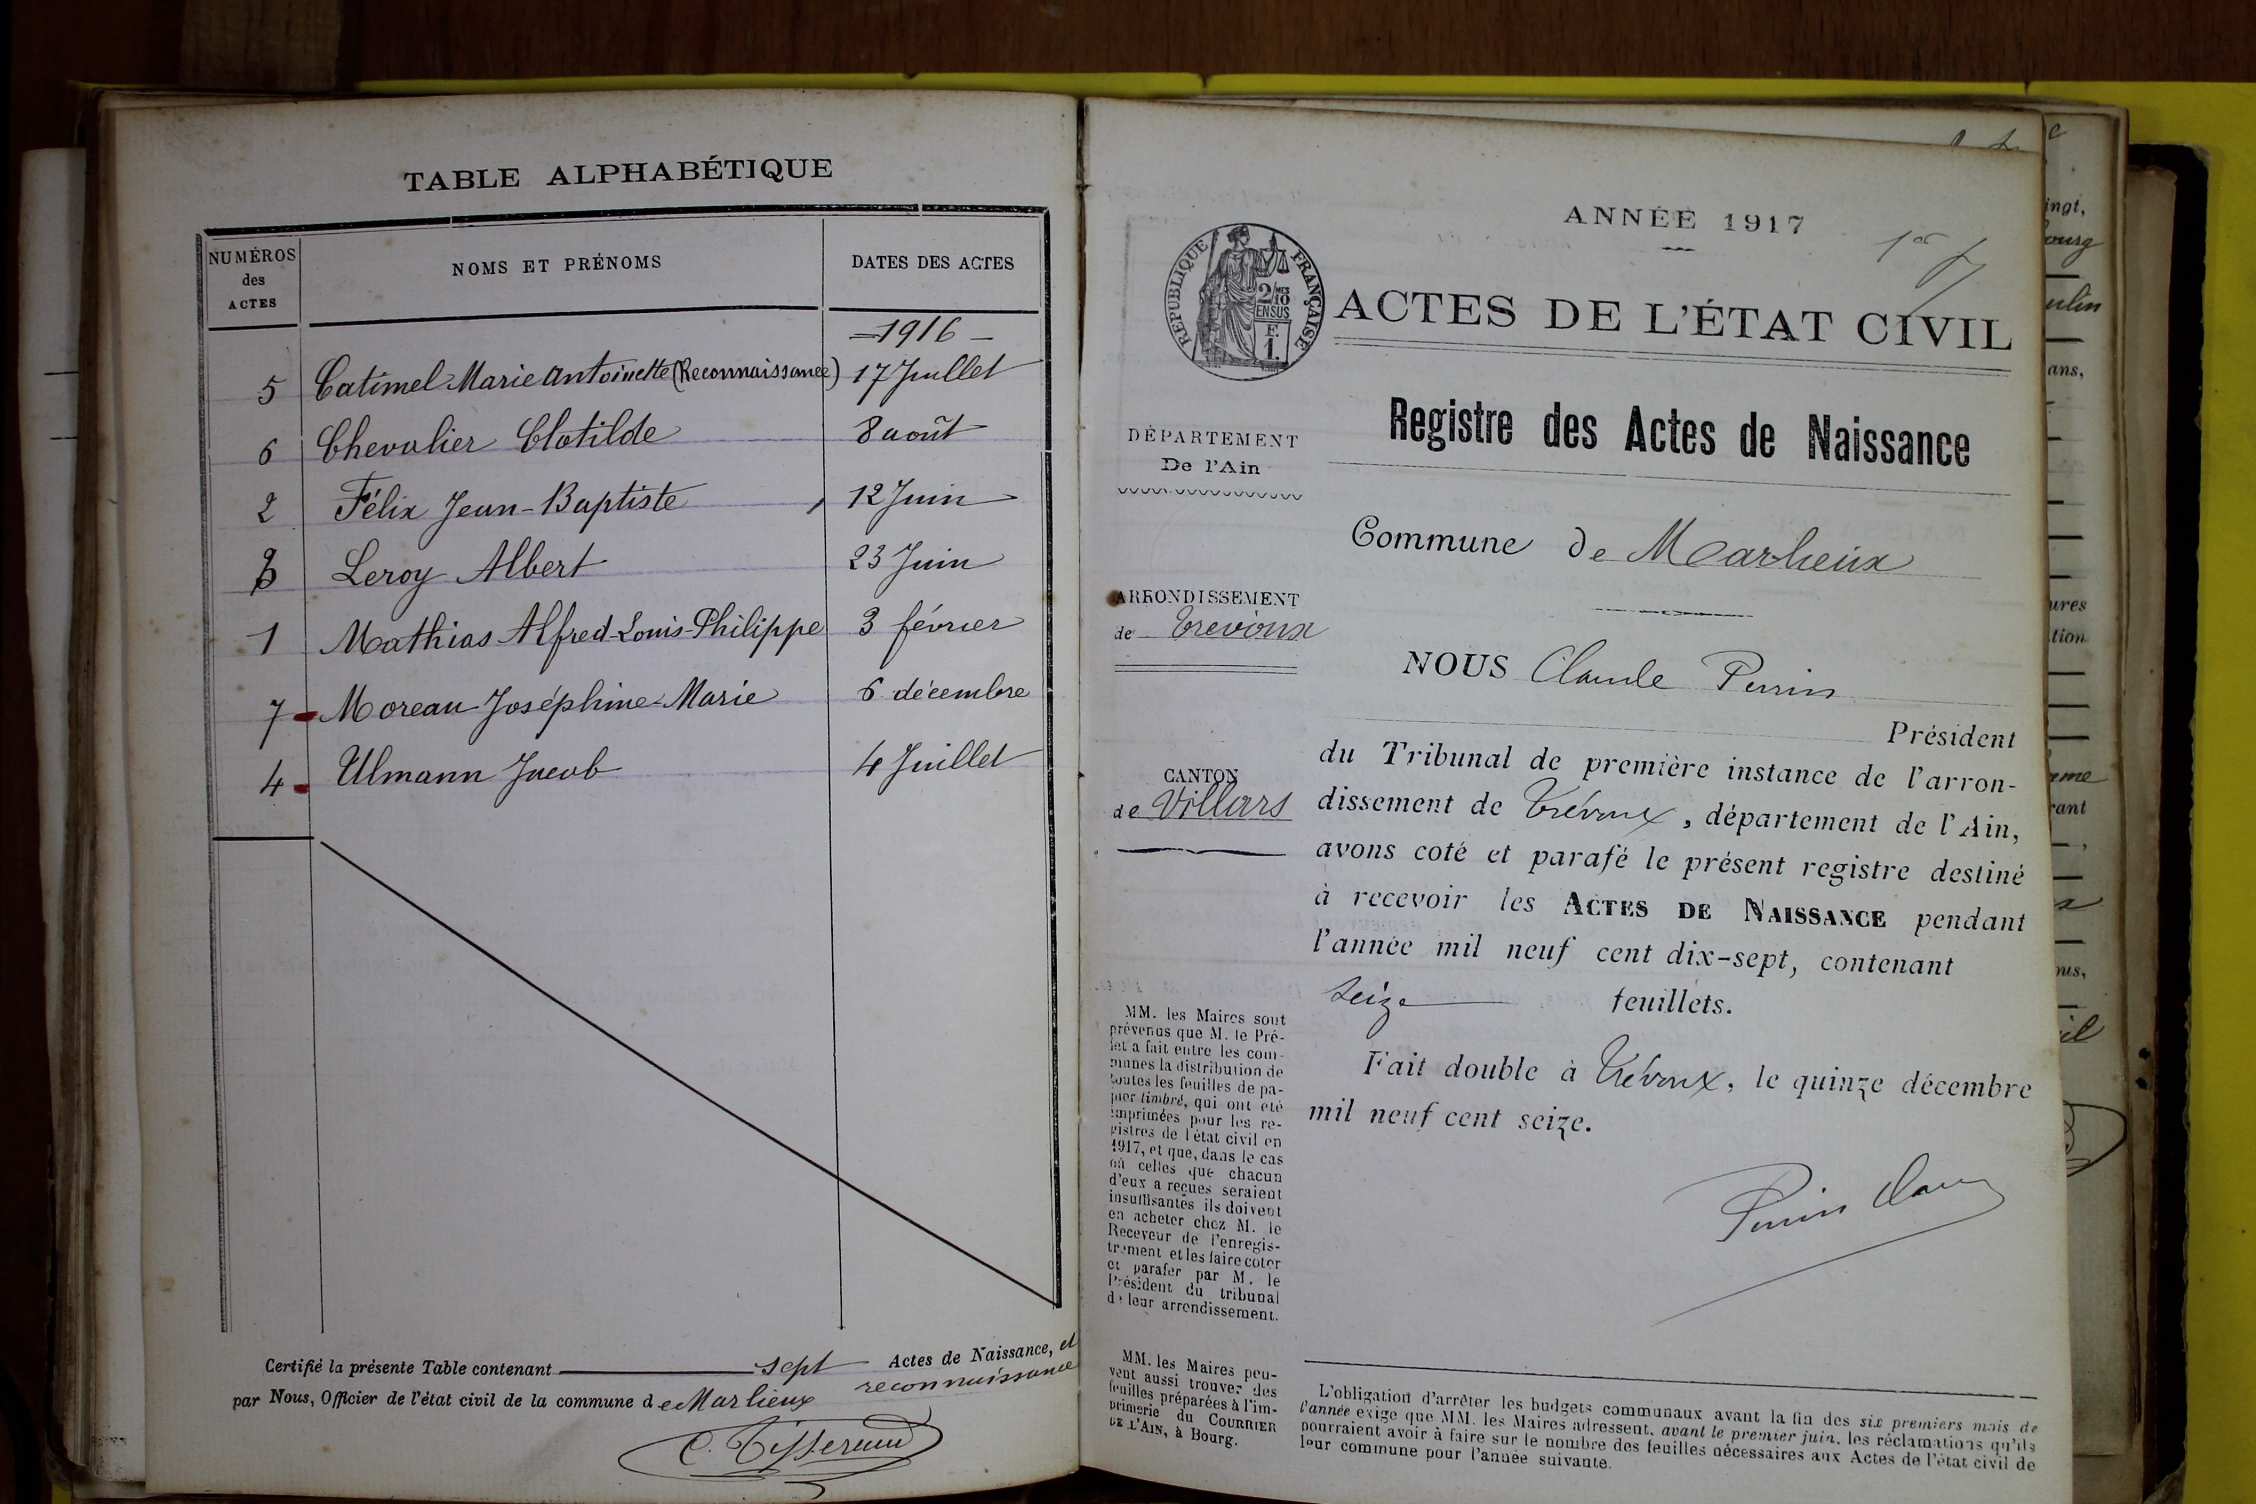 TABLE ALPHABÉTIQUE
NUMÉROS
des
ACTES
NOMS ET PRÉNOMS
DATES DES ACTES
—1916—
5 Catimel Marie Antoinette (Reconnaissance) 17 Juillet
6 Chevalier Clotilde 8 août
2 Félix Jean-Baptiste 12 Juin
3 Leroy Albert 23 Juin
1 Mathias Alfred-Louis-Philippe 3 février
7 Moreau Joséphine-Marie 6 décembre
4 Ulmann Jacob 4 Juillet
Certifié la présente Table contenant sept Actes de Naissance, et
reconnaissance
par Nous, Officier de l'état civil de la commune de Marlieux
C. Tisserand
ANNÉE 1917
ACTES DE L'ÉTAT CIVIL
RÉPUBLIQUE FRANÇAISE
2/10 MES
EN SUS
F
1.
Registre des Actes de Naissance
DÉPARTEMENT
De l'Ain
Commune de Marlieux
ARRONDISSEMENT
de Trévoux
NOUS Claude Perrin
Président
du Tribunal de première instance de l'arron-
dissement de Trévoux, département de l'Ain,
avons coté et parafé le présent registre destiné
à recevoir les ACTES DE NAISSANCE pendant
l'année mil neuf cent dix-sept, contenant
seize feuillets.
Fait double à Trévoux, le quinze décembre
mil neuf cent seize.
Perrin Claude
CANTON
de Villars
MM. les Maires sont
prévenus que M. le Pré-
fet a fait entre les com-
munes la distribution de
toutes les feuilles de pa-
pier timbré, qui ont été
imprimées pour les re-
gistres de l'état civil en
1917, et que, dans le cas
où celles que chacun
d'eux a reçues seraient
insuffisantes ils doivent
en acheter chez M. le
Receveur de l'enregis-
trement et les faire coter
et parafer par M. le
Président du tribunal
de leur arrondissement.
MM. les Maires peu-
vent aussi trouver des
feuilles préparées à l'im-
primerie du COURRIER
DE L'AIN, à Bourg.
L'obligation d'arrêter les budgets communaux avant la fin des six premiers mois de
l'année exige que MM. les Maires adressent, avant le premier juin, les réclamations qu'ils
pourraient avoir à faire sur le nombre des feuilles nécessaires aux Actes de l'état civil de
leur commune pour l'année suivante.